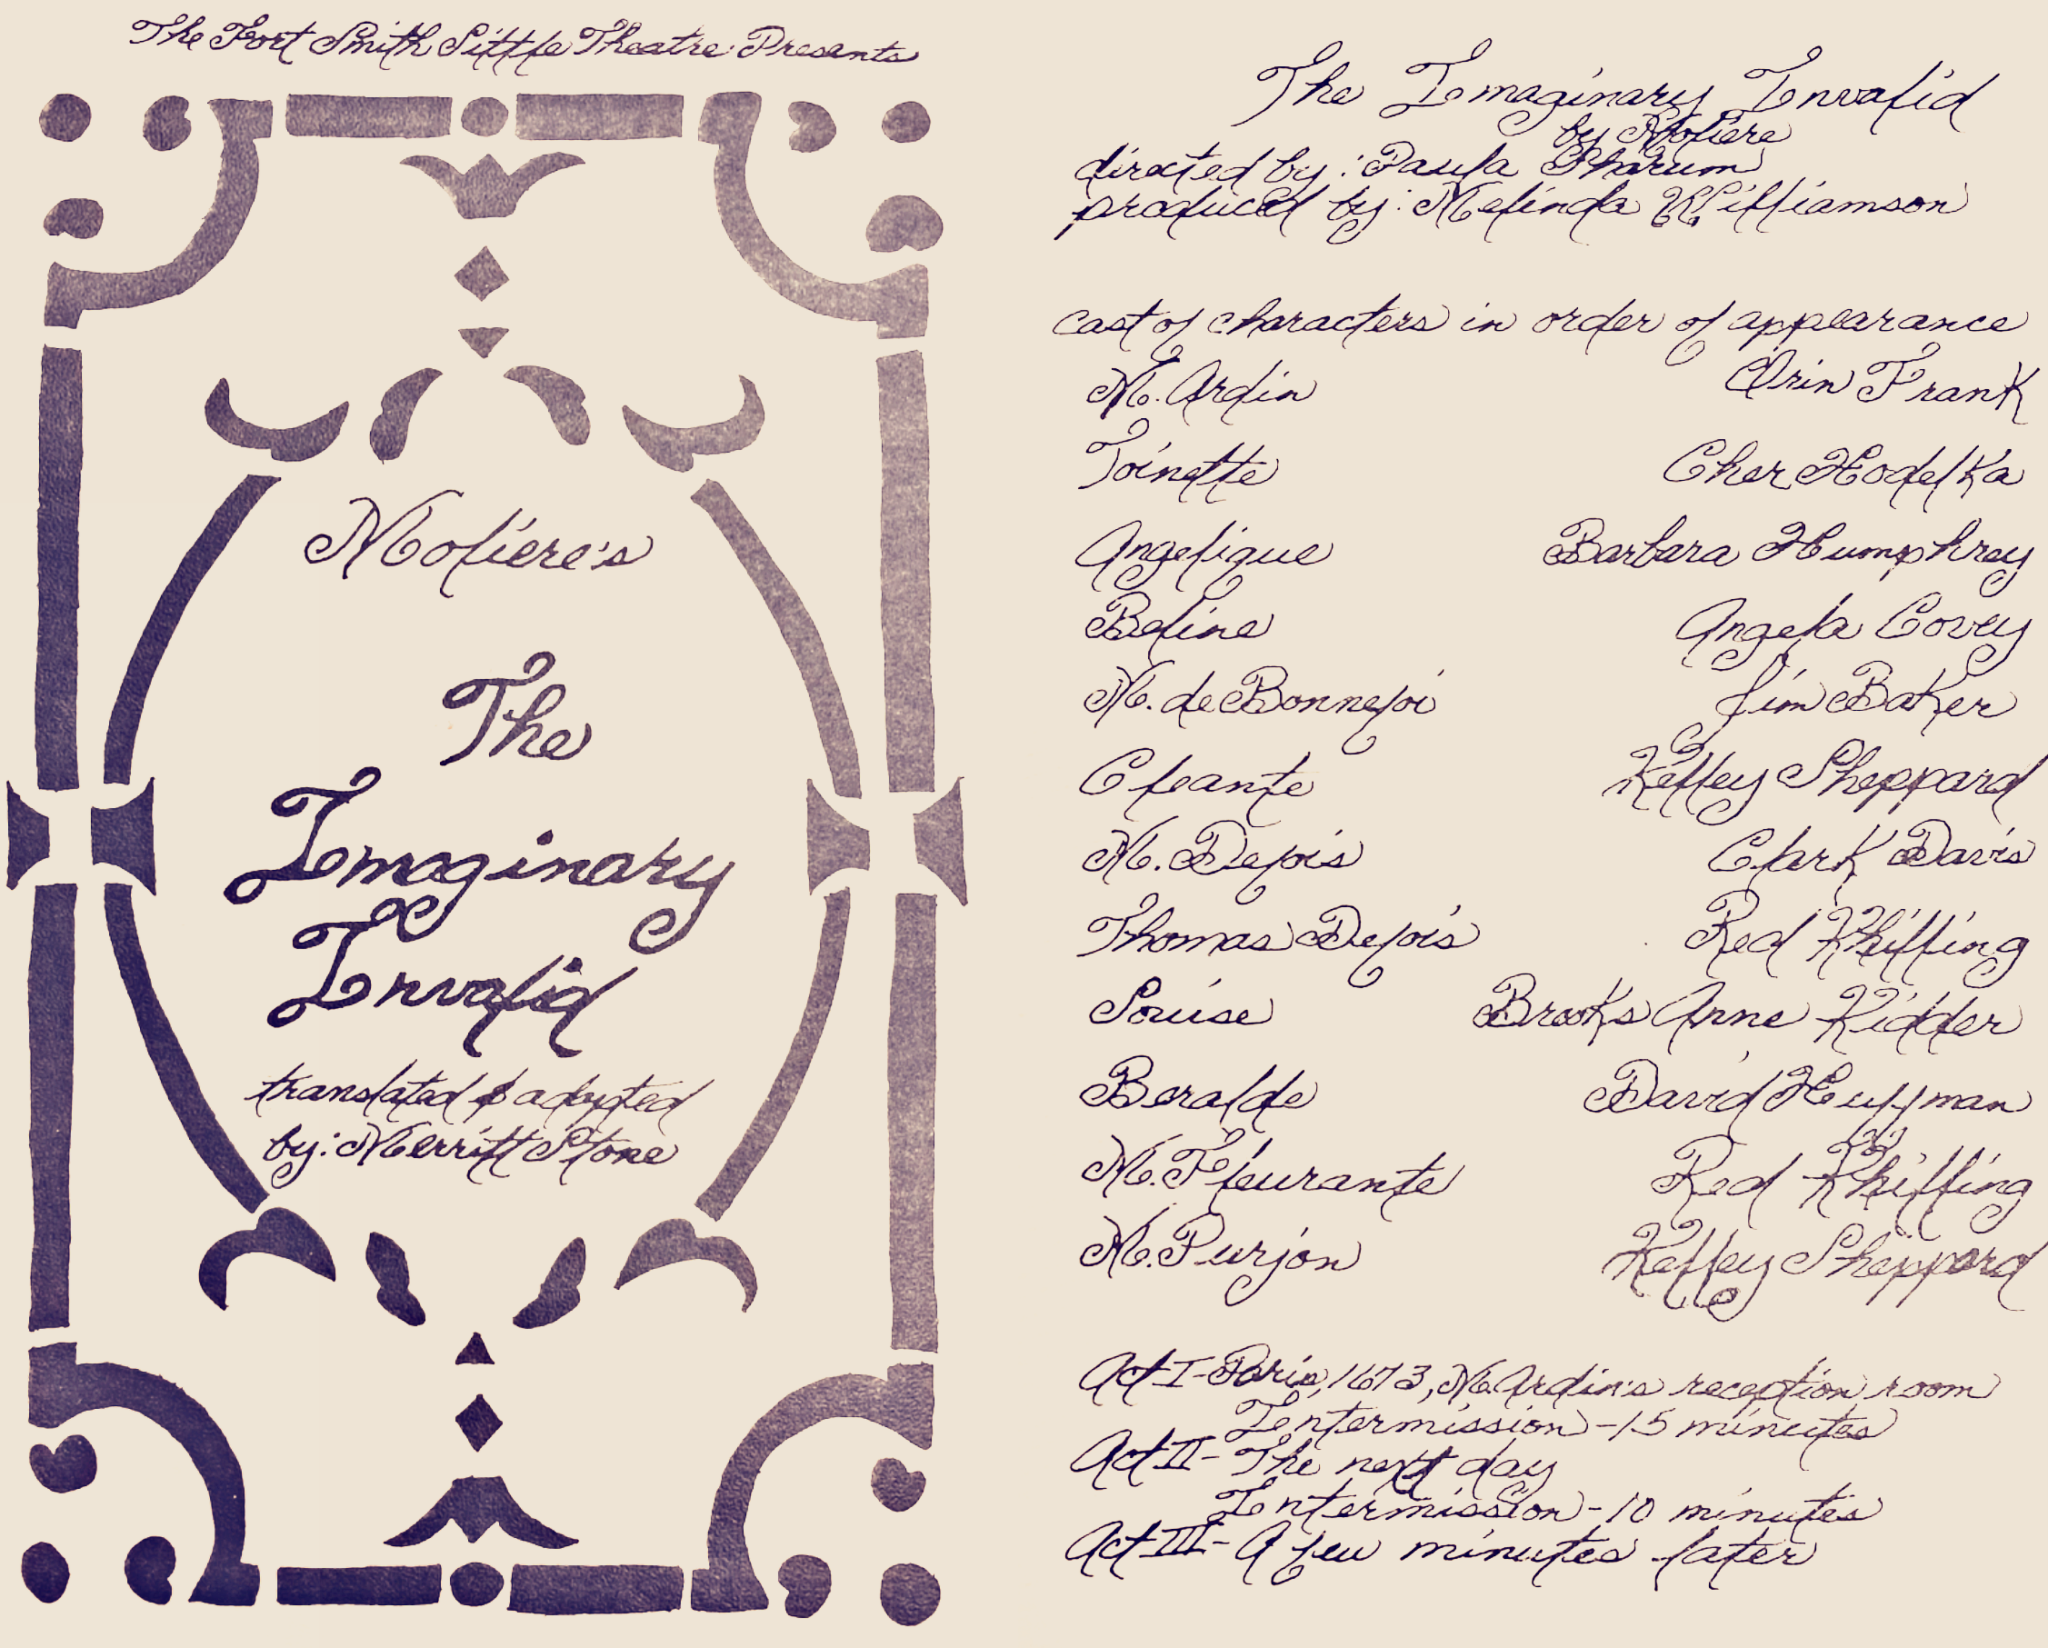 The Fort Smith Little Theatre Presents
Moliere's
The
Imaginary
Invalid
translated & adapted
by: Merritt Stone
The Imaginary Invalid
by Moliere
directed by: Paula Pharum
produced by: Melinda Williamson
cast of characters in order of appearance
M. Ardin Orin Frank
Toinette Cher Hodelka
Angelique Barbara Humphrey
Beline Angela Covey
M. de Bonnefoi Jim Baker
Cleante Kelley Sheppard
M. Defois Clark Davis
Thomas Defois Red Khilling
Louise Brooks Anne Kidder
Beralde David Huffman
M. Fleurante Red Khilling
M. Purjon Kelley Sheppard
Act I - Paris, 1673, M. Ardin's reception room
Intermission - 15 minutes
Act II - The next day
Intermission - 10 minutes
Act III - A few minutes later